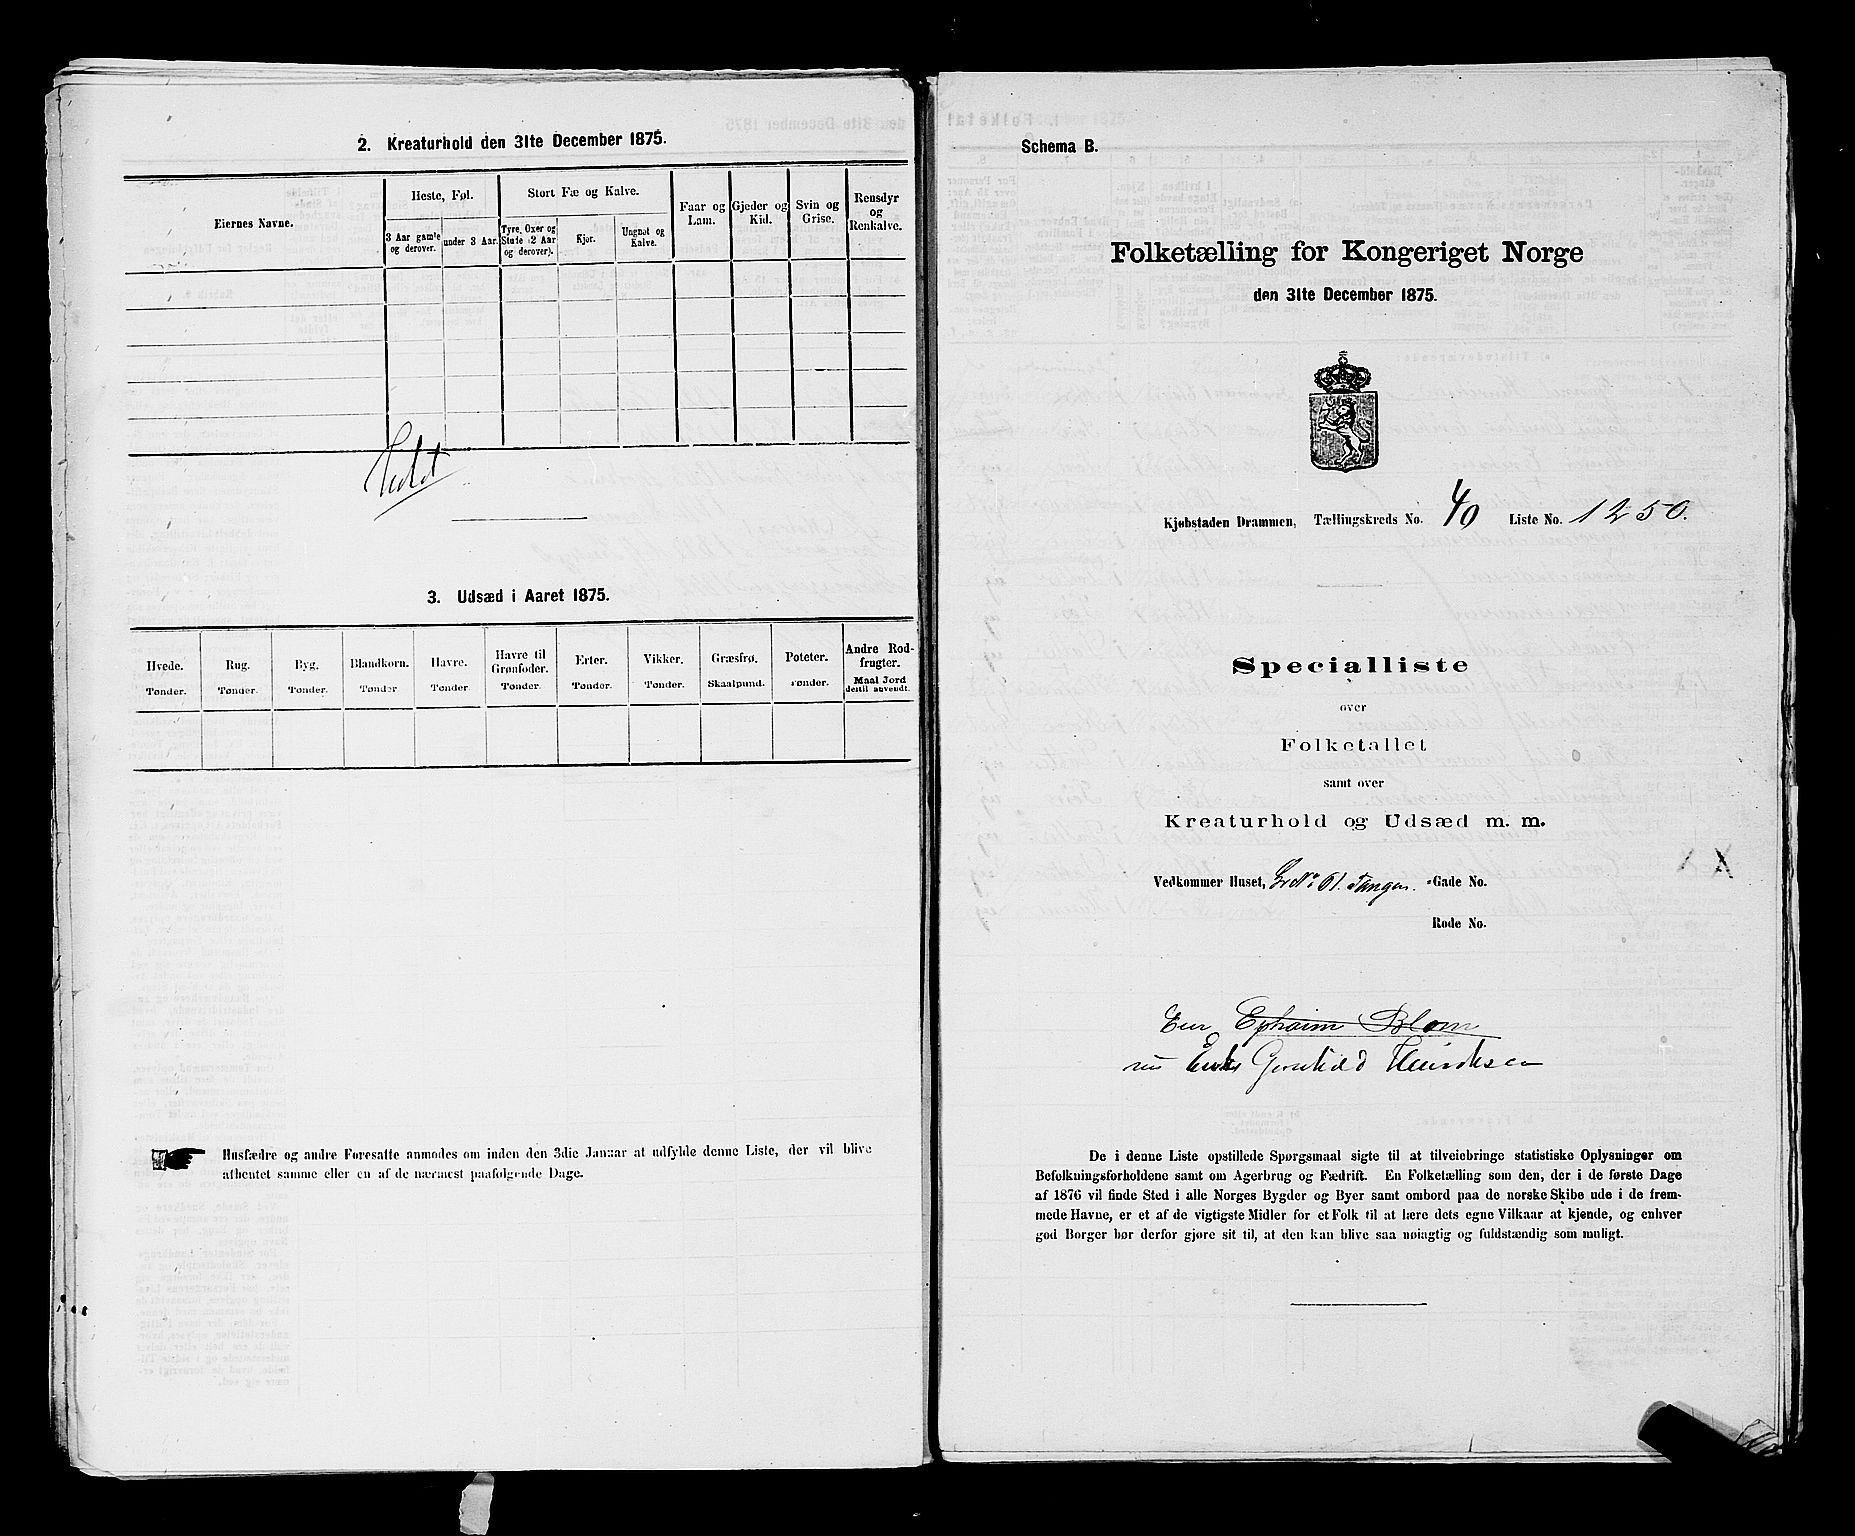 2. Kreaturhold den 31te December 1875.
Eiernes Navne.
Heste, Føl.
3 Aar gamle og derover.
under 3 Aar.
Stort Fæ og Kalve.
Tyre, Oxer og Stude (2 Aar og derover).
Kjør.
Ungnøt og Kalve.
Faar og Lam.
Gjeder og Kid.
Svin og Grise.
Rensdyr og Renkalve.
3. Udsæd i Aaret 1875.
Hvede. Tønder.
Rug. Tønder.
Byg. Tønder.
Blandkorn. Tønder
Havre. Tønder.
Havre til Grønfoder. Tønder.
Erter. Tønder.
Vikker. Tønder.
Græsfrø. Skaalpund.
Poteter. Tønder.
Andre Rodfrugter. Maal Jord dertil anvendt.
Husfædre og andre Foresatte anmodes om inden den 3die Januar at udfylde denne Liste, der vil blive
afhentet samme eller en af de nærmest paafølgende Dage.
Schema B.
Folketælling for Kongeriget Norge
den 31te December 1875.
Kjøbstaden Drammen, Tællingskreds No. 40 Liste No. 1250.
Specialliste
over
Folketallet
samt over
Kreaturhold og Udsæd m. m.
Vedkommer Huset, Gr No. 61. Tangen. -Gade No.
Rode No.
Eier Ephraim Blom
nu Enke Gunhild Hendriksen
De i denne Liste opstillede Spørgsmaal sigte til at tilveiebringe statistiske Oplysninger om
Befolkningsforholdene samt om Agerbrug og Fædrift. En Folketælling som den, der i de første Dage
af 1876 vil finde Sted i alle Norges Bygder og Byer samt ombord paa de norske Skibe ude i de frem-
mede Havne, er et af de vigtigste Midler for et Folk til at lære dets egne Vilkaar at kjende, og enhver
god Borger bør derfor gjøre sit til, at den kan blive saa nøiagtig og fuldstændig som muligt.